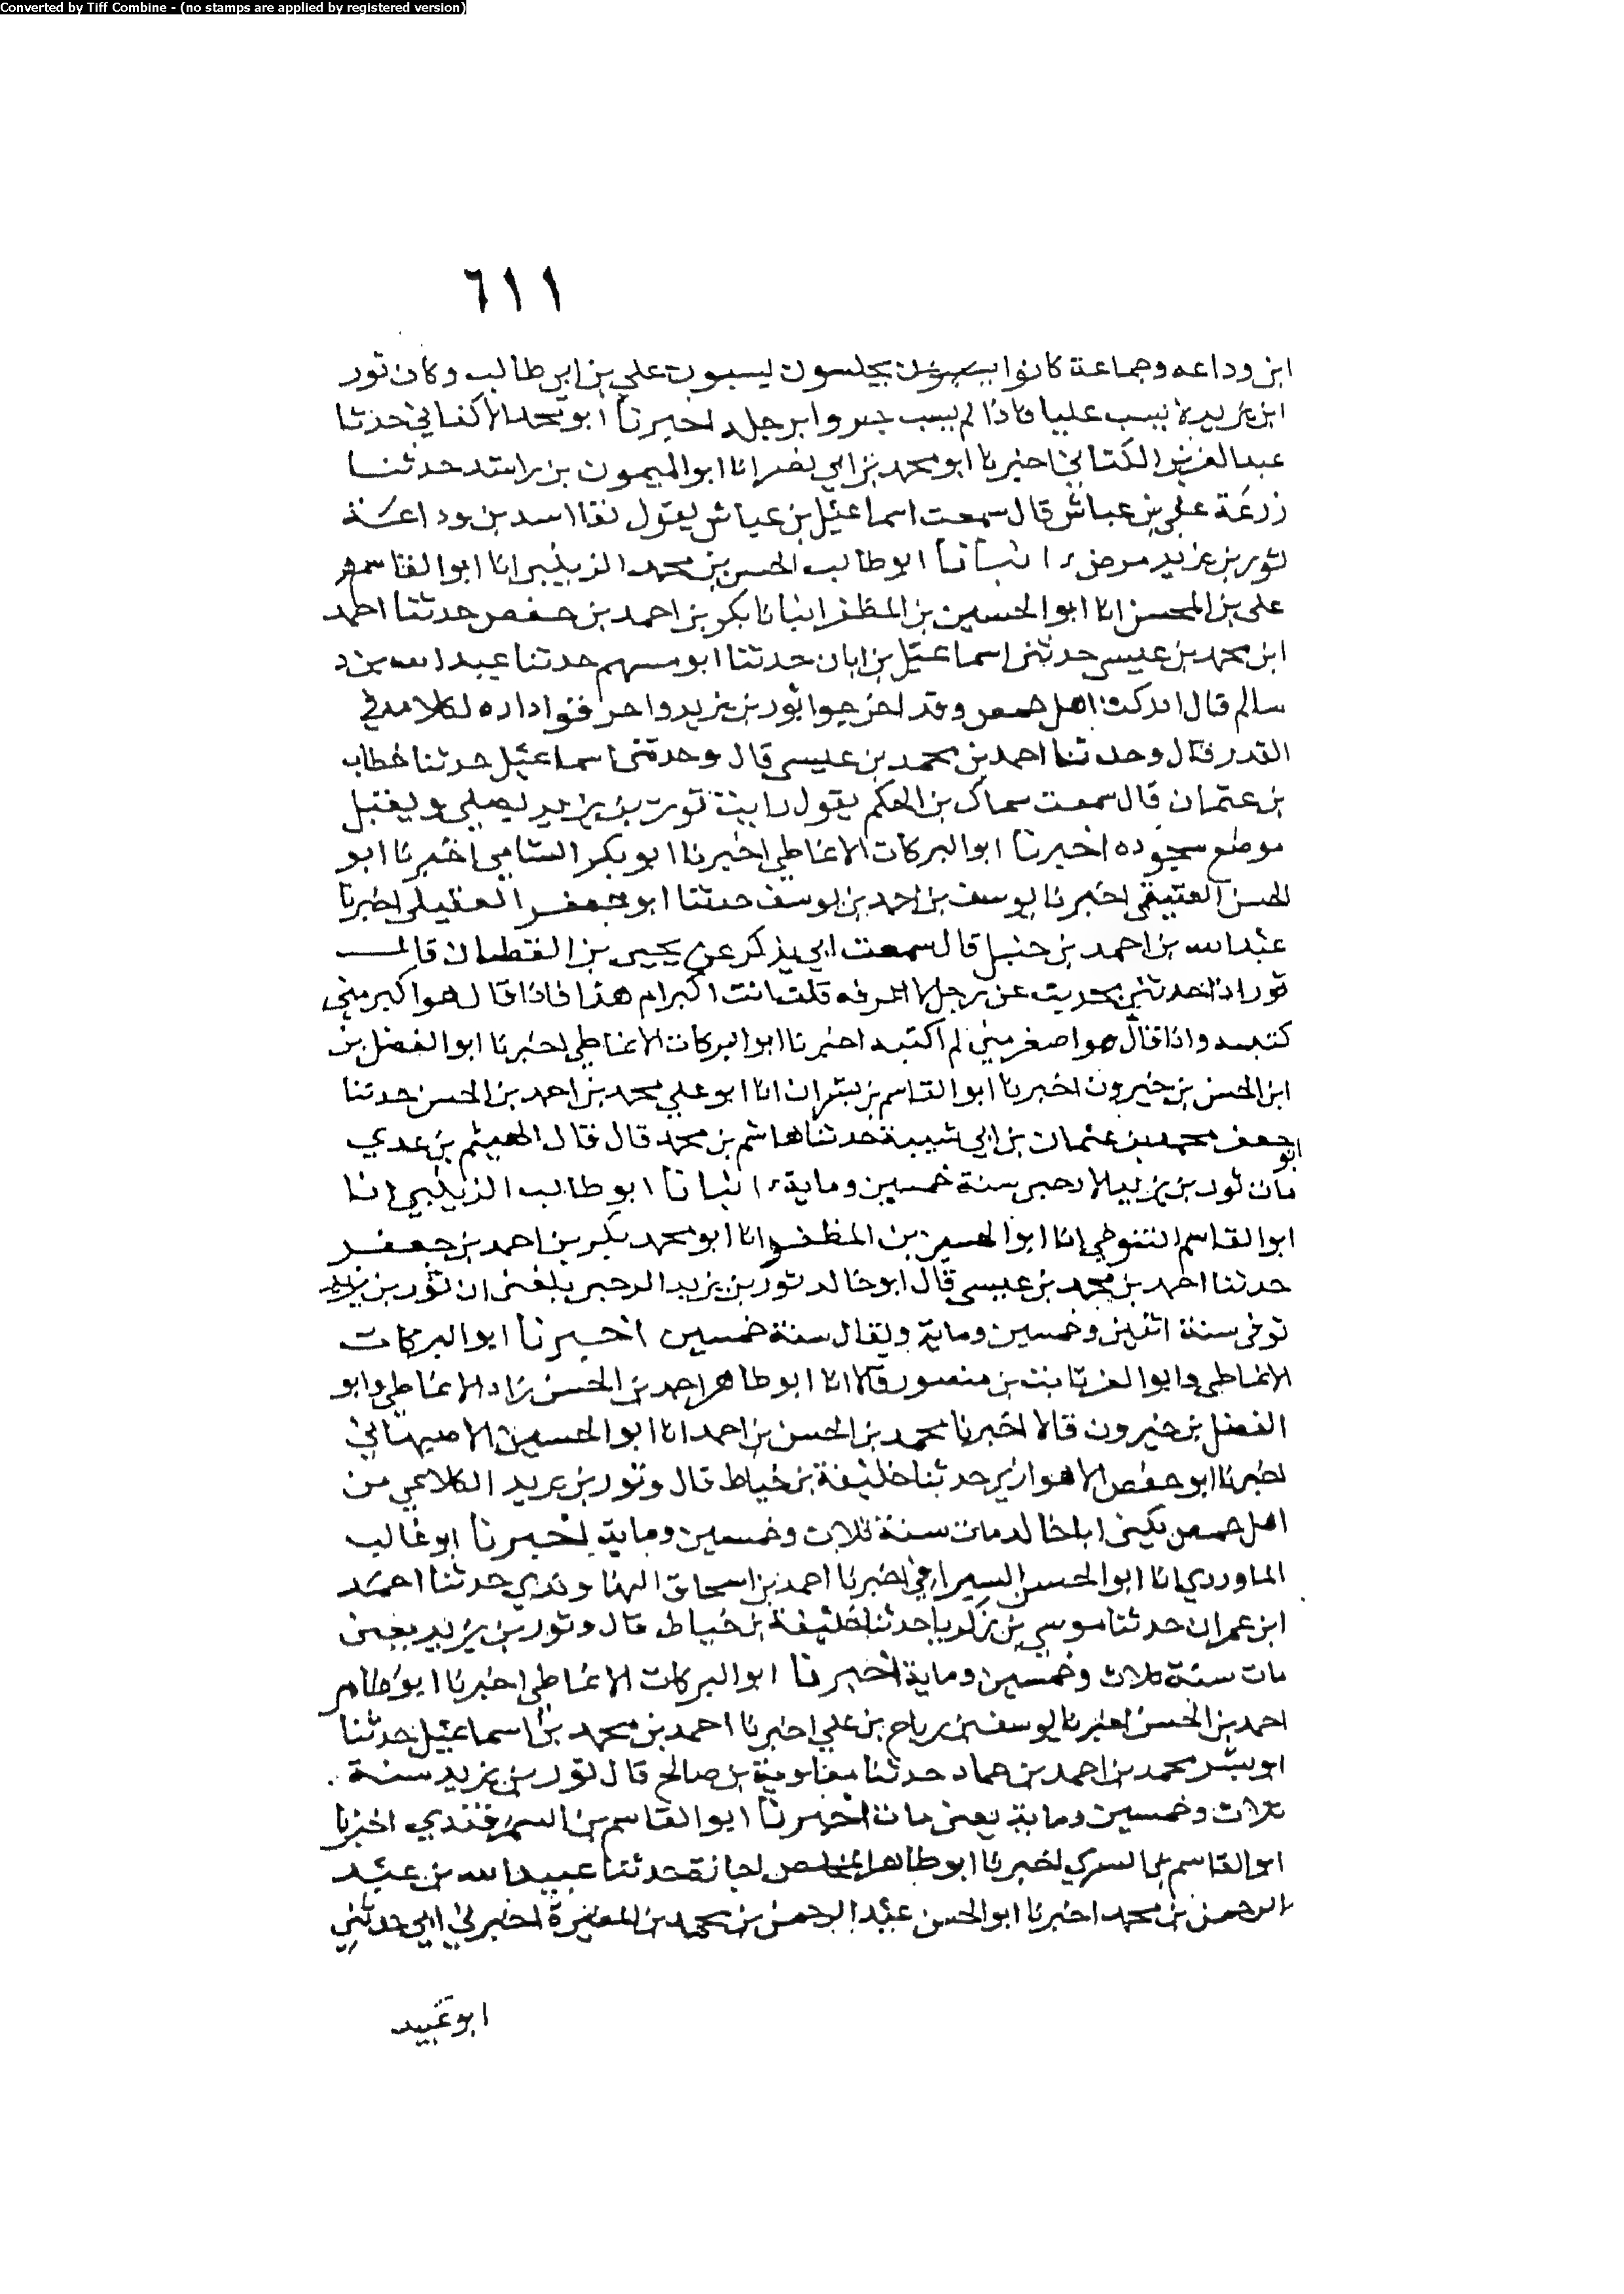 Converted by Tiff Combine - (no stamps are applied by registered version)
٦١١
ابن وداعه وجماعة كانوا يجلسون يسبون علي بن ابي طالب وكان ثور
ابن يزيد لا يسب عليا فاذا لم يسب جروا برجله اخبرنا ابو محمد الاكفاني حدثنا
عبد العزيز الكتاني اخبرنا ابو محمد بن ابي نصر انا ابو الميمون بن راشد حدثنا
زرعة علي بن عياش قال سمعت اسماعيل بن عياش يقول نفا اسد بن وداعة
ثور بن يزيد انبانا ابو طالب الحسن بن محمد الزينبي انا ابو القاسم
علي بن المحسن انا ابو الحسين بن المظفر انبانا بكر بن احمد بن حفص حدثنا احمد
ابن محمد بن عيسى حدثني اسماعيل بن ابان حدثنا ابو مسهر حدثنا عبد الله بن
سالم قال ادركت اهل حمص وقد اخرجوا ثور بن يزيد واحرقوا داره لكلامه في
القدر قال وحدثنا احمد بن محمد بن عيسى قال وحدثني اسماعيل حدثنا خطاب
بن عثمان قال سمعت سماك بن الحكم يقول رايت ثور بن يزيد يصلي ويقبل
موضع سجوده اخبرنا ابو البركات الانماطي اخبرنا ابو بكر الشامي اخبرنا ابو
الحسن العتيقي اخبرنا يوسف بن احمد بن يوسف حدثنا ابو جعفر العقيلي اخبرنا
عبد الله بن احمد بن حنبل قال سمعت ابي يذكر عن يحيى بن القطان قال
ثور اذا حدثني بحديث عن رجل لا اعرفه قلت انت اكبر ام هذا فاذا قال هو اكبر مني
كتبته واذا قال هو اصغر مني لم اكتبه اخبرنا ابو البركات الانماطي اخبرنا ابو الفضل بن
ابن الحسن بن خيرون اخبرنا ابو القاسم بن بشران انا ابو علي محمد بن احمد بن الحسن حدثنا
ابو جعفر محمد بن عثمان بن ابي شيبة حدثنا هاشم بن محمد قال قال الهيثم بن عدي
مات ثور بن يزيد الارحبي سنة خمسين وماية انبانا ابو طالب الزينبي انا
ابو القاسم التنوخي انا ابو الحسين بن المظفر انا ابو محمد بكر بن احمد بن جعفر
حدثنا احمد بن محمد بن عيسى قال ابو خالد ثور بن يزيد الرحبي بلغني ان ثور بن يزيد
توفى سنة اثنين وخمسين وماية ويقال سنة خمسين اخبرنا ابو البركات
الانماطي وابو العز ثابت بن منصور قالا انا ابو طاهر احمد بن الحسن زاد الانماطي وابو
الفضل بن خيرون قالا اخبرنا محمد بن الحسن بن احمد انا ابو الحسين الاصبهاني
اخبرنا ابو حفص الاهوازي حدثنا خليفة بن خياط قال وثور بن يزيد الكلاعي من
اهل حمص يكنى ابا خالد مات سنة ثلاث وخمسين وماية اخبرنا ابو غالب
الماوردي انا ابو الحسن السيرافي اخبرنا احمد بن اسحاق النهاوندي حدثنا احمد
ابن عمران حدثنا موسى بن زكريا حدثنا خليفة بن خياط قال وثور بن يزيد يعني
مات سنة ثلاث وخمسين وماية اخبرنا ابو البركات الانماطي اخبرنا ابو طاهر
احمد بن الحسن اخبرنا يوسف بن رباح بن علي اخبرنا احمد بن محمد بن اسماعيل حدثنا
ابو بشر محمد بن احمد بن حماد حدثنا معاوية بن صالح قال ثور بن يزيد سنة
ثلاث وخمسين وماية يعني مات اخبرنا ابو القاسم بن السمرقندي اخبرنا
ابو القاسم بن السري اخبرنا ابو طاهر المخلص اجازة حدثنا عبيد الله بن عبد
الرحمن بن محمد اخبرنا ابو الحسن عبد الرحمن بن محمد بن المغيرة اخبرني ابي حدثني
ابو عبيد